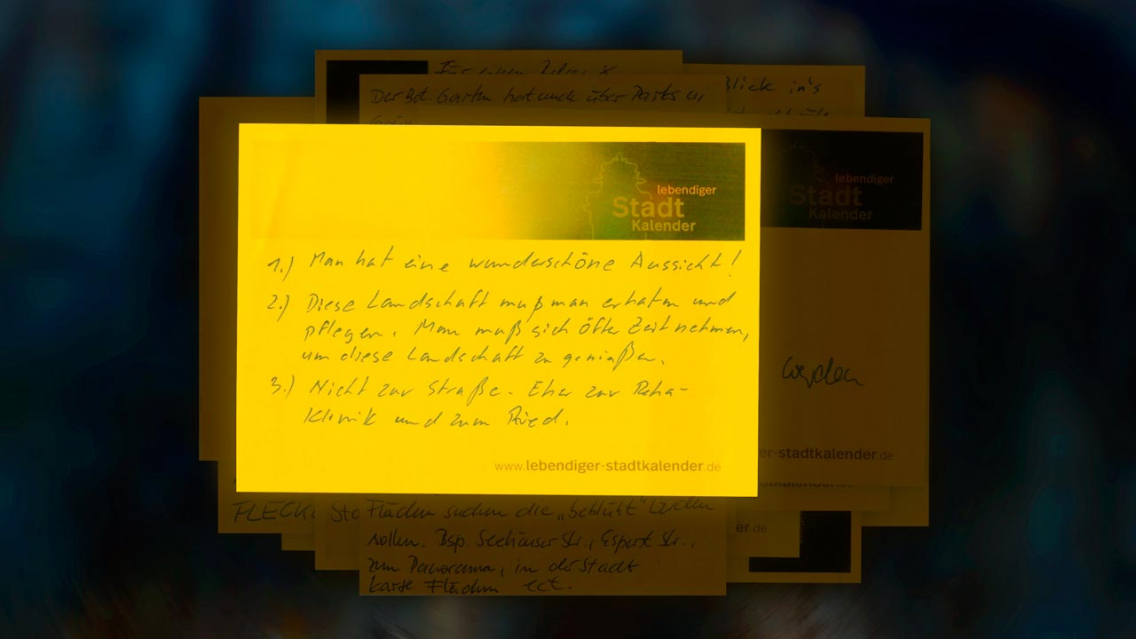 Für einen
Blick in's
Der Bot. Garten hat auch über Parks in
lebendiger
Stadt
Kalender
lebendiger
Stadt
Kalender
1.) Man hat eine wunderschöne Aussicht!
2.) Diese Landschaft muß man erhalten und
pflegen. Man muß sich öfter Zeit nehmen,
um diese Landschaft zu genießen.
3.) Nicht zur Straße. Eher zur Reha-
Klinik und zum Ried.
www.lebendiger-stadtkalender.de
werden
er-stadtkalender.de
stadtkalender.de
FLECK
Sto
Flächen suchen die "beblüht" werden
er.de
sollen. Bsp. Seehäuser Str., Esperst. Str.,
zum Panorama, in der Stadt
karge Flächen ect.